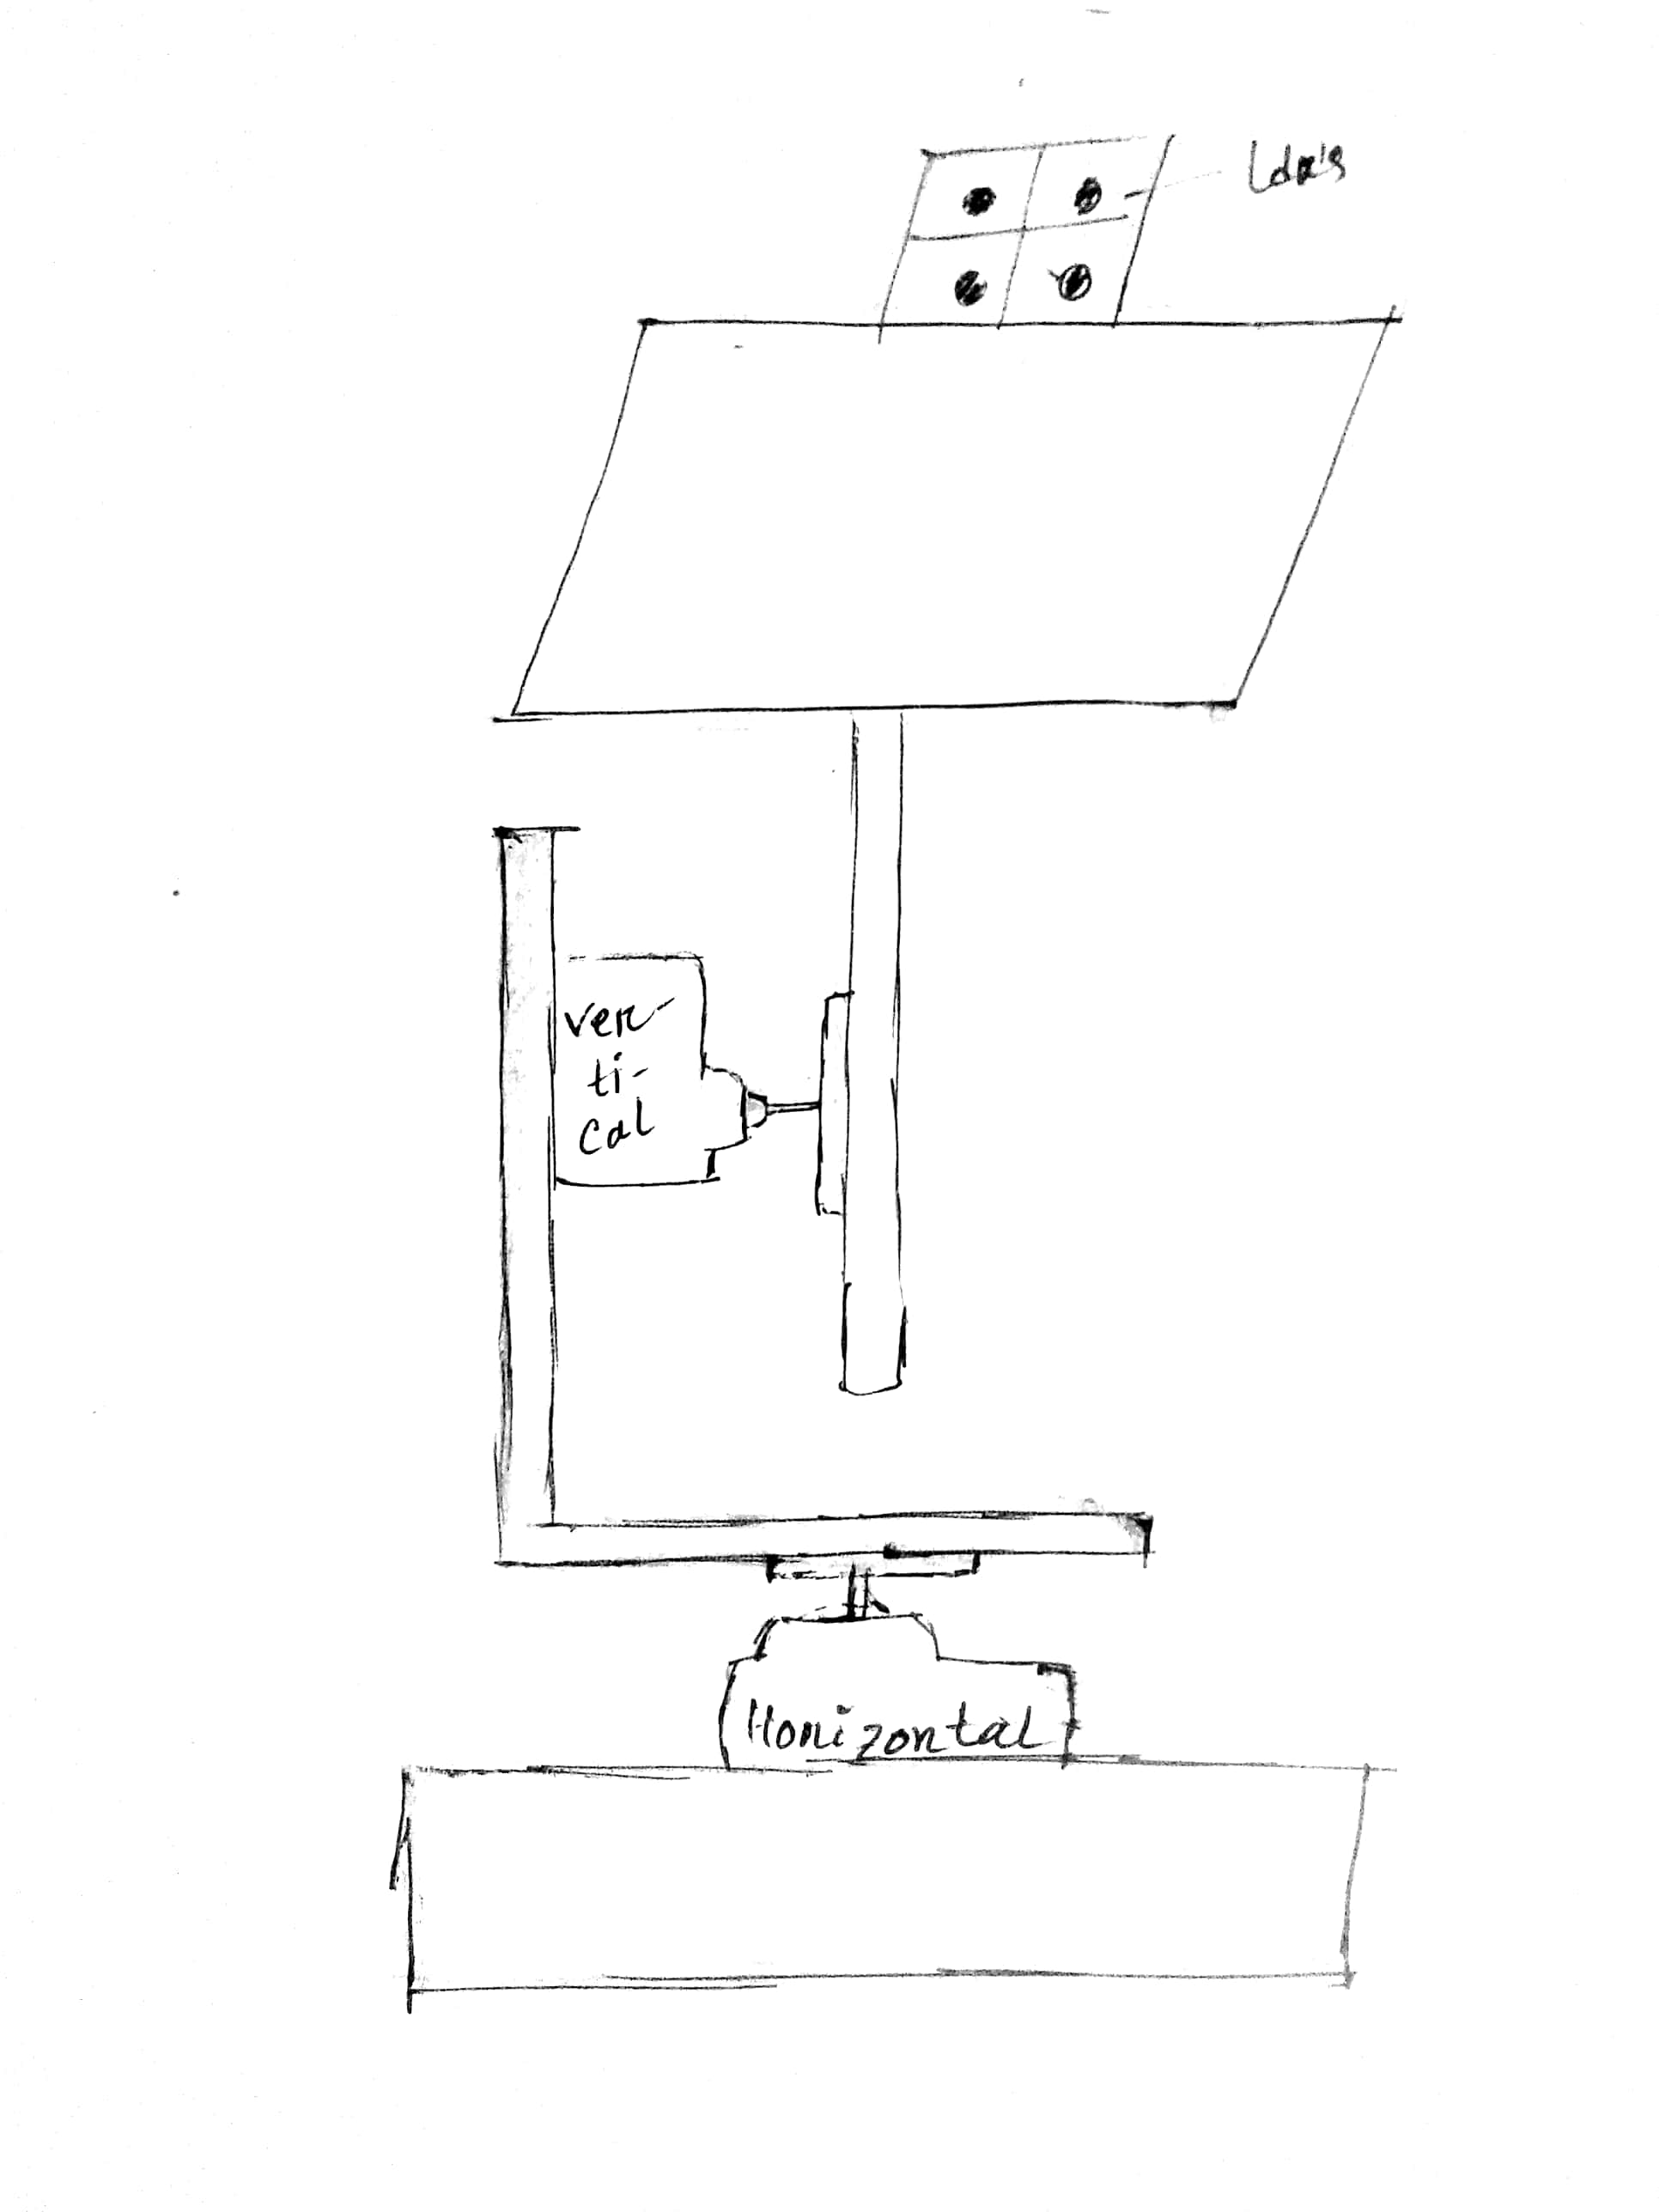 Ldr's
ver-
ti-
cal
Horizontal